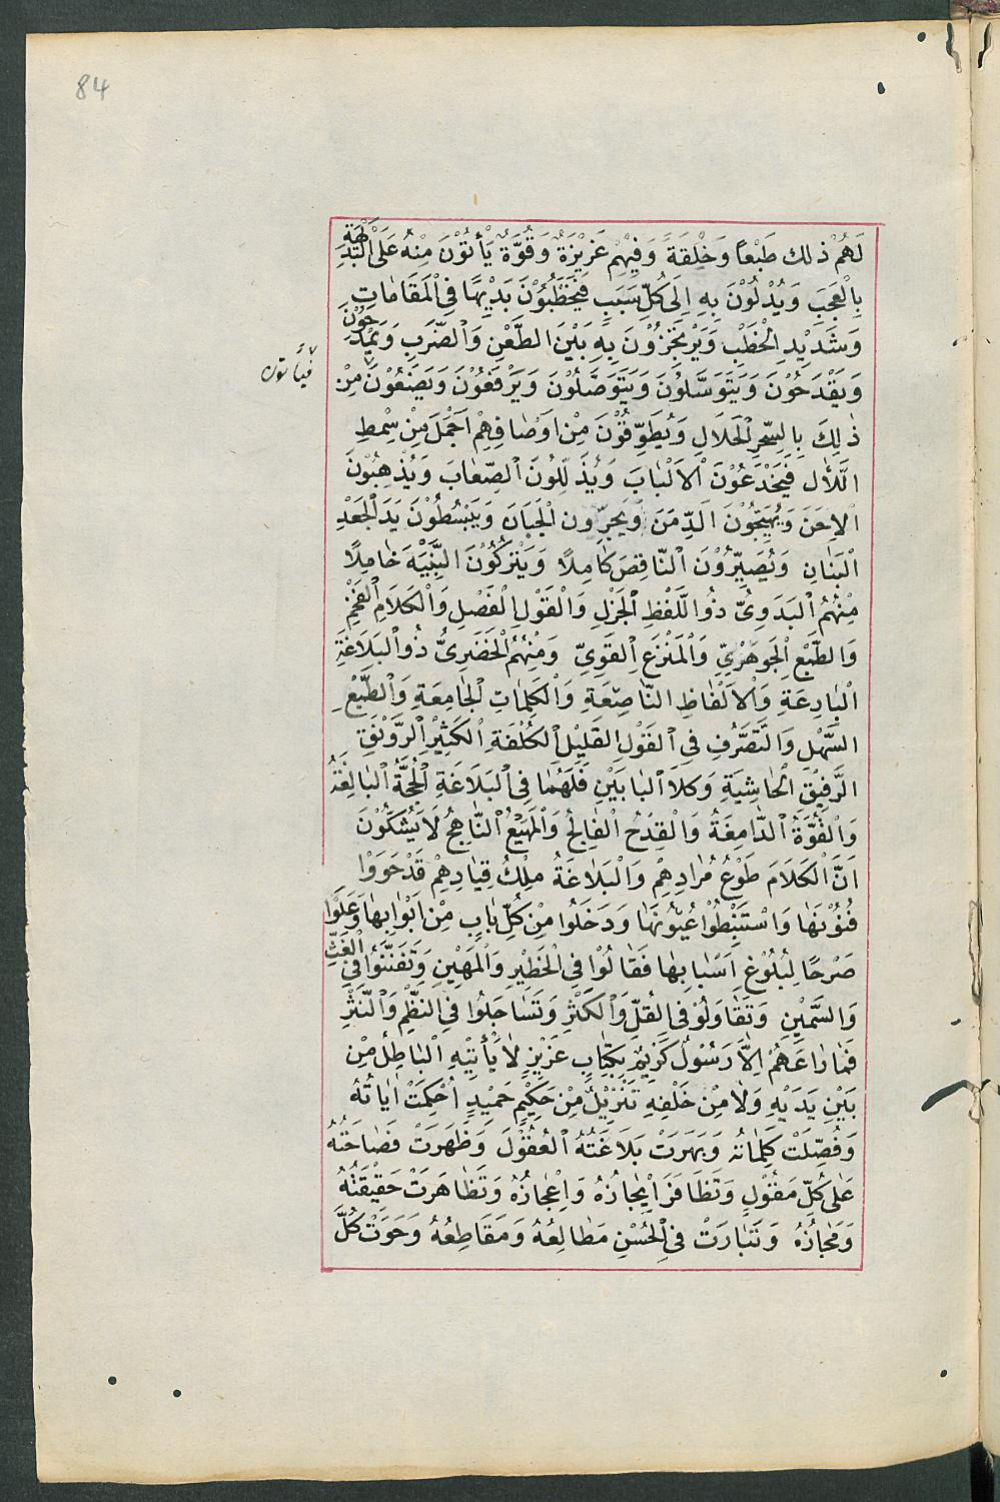 84
لَهُمْ ذلك طَبْعاً وَخِلْقَةً وَفِيهِمْ غَرِيزَةً وَقُوَّةً يَأْتُوْنَ مِنْهُ عَلَى الْبَدِيْهَةِ
بِالْعَجَبِ وَيُدْلُوْنَ بِهِ اِلَى كُلِّ سَبَبٍ فَيَخْطُبُوْنَ بَدِيْهًا فِى الْمَقَامَاتِ
وَشَدِيْدِ الْخَطْبِ وَيَرْتَجِزُوْنَ بِهِ بَيْنَ الطَّعْنِ وَالضَّرْبِ وَيَمْدَحُوْنَ
وَيَقْدَحُوْنَ وَيَتَوَسَّلُوْنَ وَيَتَوَصَّلُوْنَ وَيَرْفَعُوْنَ وَيَضَعُوْنَ مِنْ
فَيَأْتُونَ
ذٰلِكَ بِالسِّحْرِ الْحَلَالِ وَيُطَوِّقُوْنَ مِنْ اَوْصَافِهِمْ اَجْمَلَ مِنْ سِمْطِ
اللَّأٰل فَيَخْدَعُوْنَ الْاَلْبَابَ وَيُذَلِّلُونَ الصِّعَابَ وَيُذْهِبُوْنَ
الاِحَنَ وَيُهَيِّجُوْنَ الدِّمَنَ وَيُجَرِّون الْجَبَانَ وَيَبْسُطُوْنَ يَدَ الْجَعْدِ
الْبَنَانِ وَيُصَيِّرُوْنَ النَّاقِصَ كَامِلًا وَيَتْرُكُوْنَ النَّبِيْهَ خَامِلًا
مِنْهُمُ الْبَدَوِىُّ ذُو اللَّفْظِ الْجَزْلِ وَالْقَوْلِ الْفَصْلِ وَالْكَلَامِ الْفَخْمِ
وَالطَّبْعِ الْجَوْهَرِيِّ وَالْمَنْزَعِ الْقَوِيِّ وَمِنْهُمُ الْحَضَرِىُّ ذُو الْبَلَاغَةِ
الْبَارِعَةِ وَالْاَلْفَاظِ النَّاصِعَةِ وَالْكَلِمَاتِ الْجَامِعَةِ وَالطَّبْعِ
السَّهْلِ وَالتَّصَرُّفِ فِى الْقَوْلِ الْقَلِيْلِ الْكُلْفَةِ الْكَثِيْرِ الرَّوْنَقِ
الرَّقِيْقِ الْحَاشِيَةِ وَكلَا الْبَابَيْنِ فَلَهُمَا فِى الْبَلَاغَةِ الْحُجَّةُ الْبَالِغَةُ
وَالْقُوَّةُ الدَّامِغَةُ وَالْقِدْحُ الْفَالِجُ وَالْمَهْيَعُ النَّاهِجُ لَايَشُكُّوْنَ
اَنَّ الْكَلَامَ طَوْعُ مُرَادِهِمْ وَالْبَلَاغَةُ مِلْكُ قِيَادِهِمْ قَدْحَوَوْا
فُنُوْنَهَا وَاسْتَنْبَطُوْا عُيُوْنَهَا وَدَخَلُوا مِنْ كُلِّ بَابٍ مِنْ اَبْوَابِهَا وَعَلَوْا
صَرْحًا لِبُلُوْغِ اَسْبَابِهَا فَقَالُوْا فِى الْخَطِيْرِ وَالْمَهِيْنِ وَتَفَنَّنُوْا فِى الْغَثِّ
وَالسَّمِيْنِ وَتَقَاوَلُوْ فِى الْقُلِّ وَالْكُثْرِ وَتَسَاجَلُوا فِى النَّظْمِ وَالنَّثْرِ
فَمَا رَاعَهُمْ اِلَّا رَسُوْلٌ كَرِيْمٌ بِكِتَابٍ عَزِيْزٍ لَا يَأْتِيْهِ الْبَاطِلُ مِنْ
بَيْنِ يَدَيْهِ وَلَا مِنْ خَلْفِهِ تَنْزِيْلٌ مِنْ حَكِيْمٍ حَمِيْدٍ اُحْكِمَتْ اٰيَاتُهُ
وَفُصِّلَتْ كَلِمَاتُهُ وَبَهَرَتْ بَلَاغَتُهُ الْعُقُوْلَ وَظَهَرَتْ فَصَاحَتُهُ
عَلٰى كُلِّ مَقُوْلٍ وَتَظَافَرَ اِيْجَازُهُ وَاِعْجَازُهُ وَتَظَاهَرَتْ حَقِيْقَتُهُ
وَمَجَازُهُ وَتَبَارَتْ فِى الْحُسْنِ مَطَالِعُهُ وَمَقَاطِعُهُ وَحَوَتْ كُلَّ